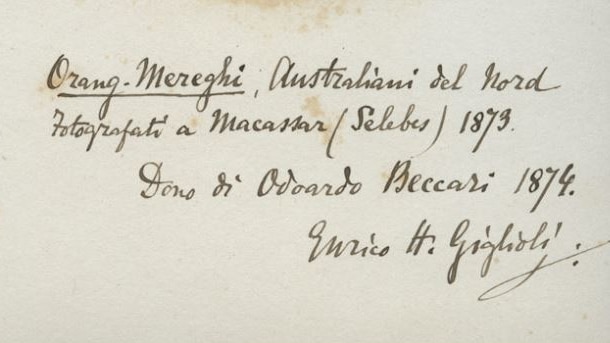 Orang-Mereghi, Australiani del Nord
Fotografati a Macassar (Selebes) 1873.
Dono di Odoardo Beccari 1874.
Enrico H. Giglioli.